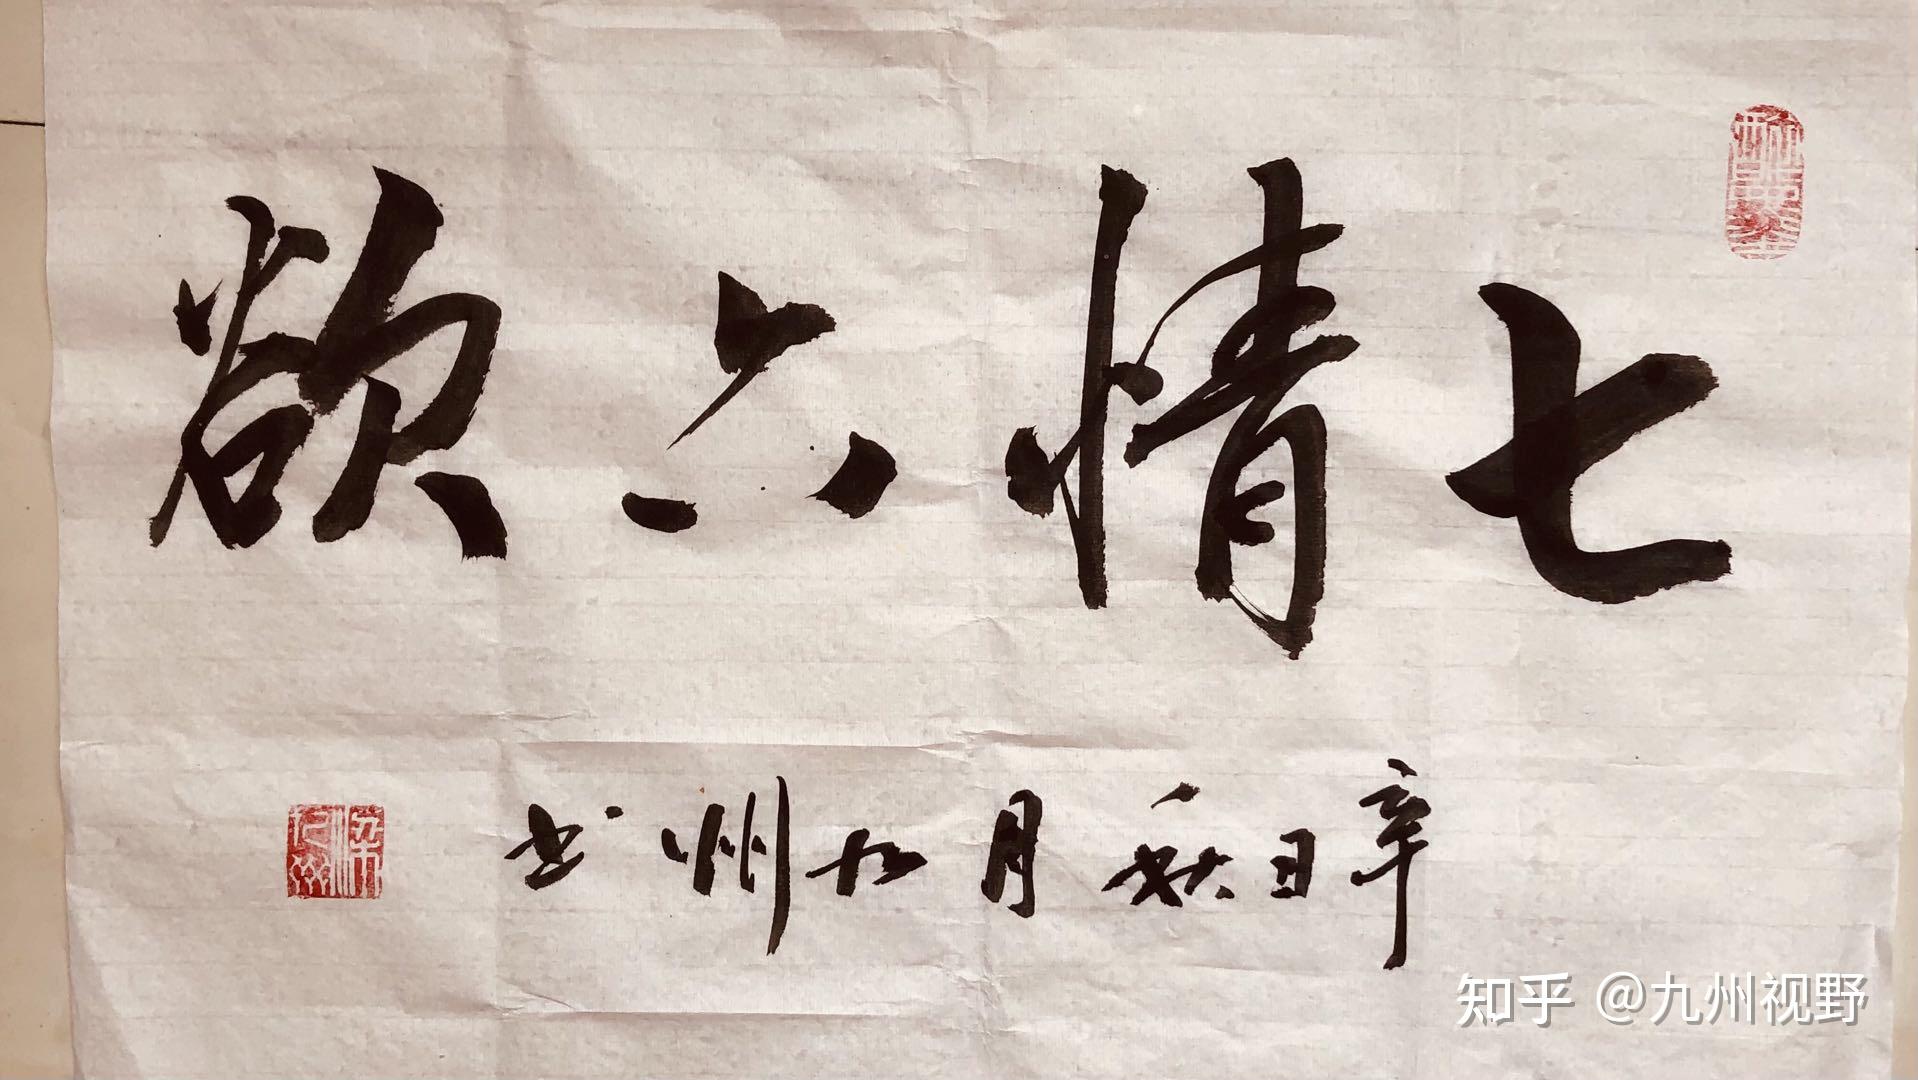 七情六欲
辛丑秋月九州书
知乎 @九州视野